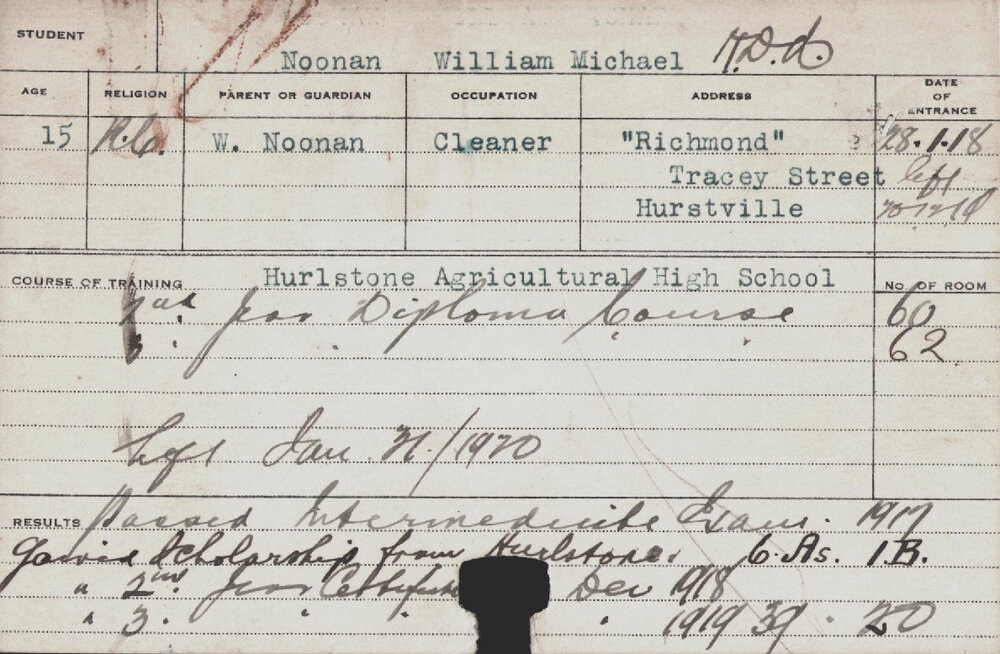 STUDENT
Noonan William Michael H.D.A.
AGE RELIGION PARENT OR GUARDIAN OCCUPATION ADDRESS DATE OF ENTRANCE
15 R.C. W. Noonan Cleaner "Richmond" 28.1.18
Tracey Street left
Hurstville
COURSE OF TRAINING Hurlstone Agricultural High School No. OF ROOM
2nd Year Diploma Course 60
3 " " " 62
Left Jan. 31/1920
RESULTS Passed Intermediate Exam. 1917
Gained Scholarship from Hurlstone. 6.As. 1.B.
" 2nd Year Certificate Dec 1918
" 3. " " " 1919 39 . 20